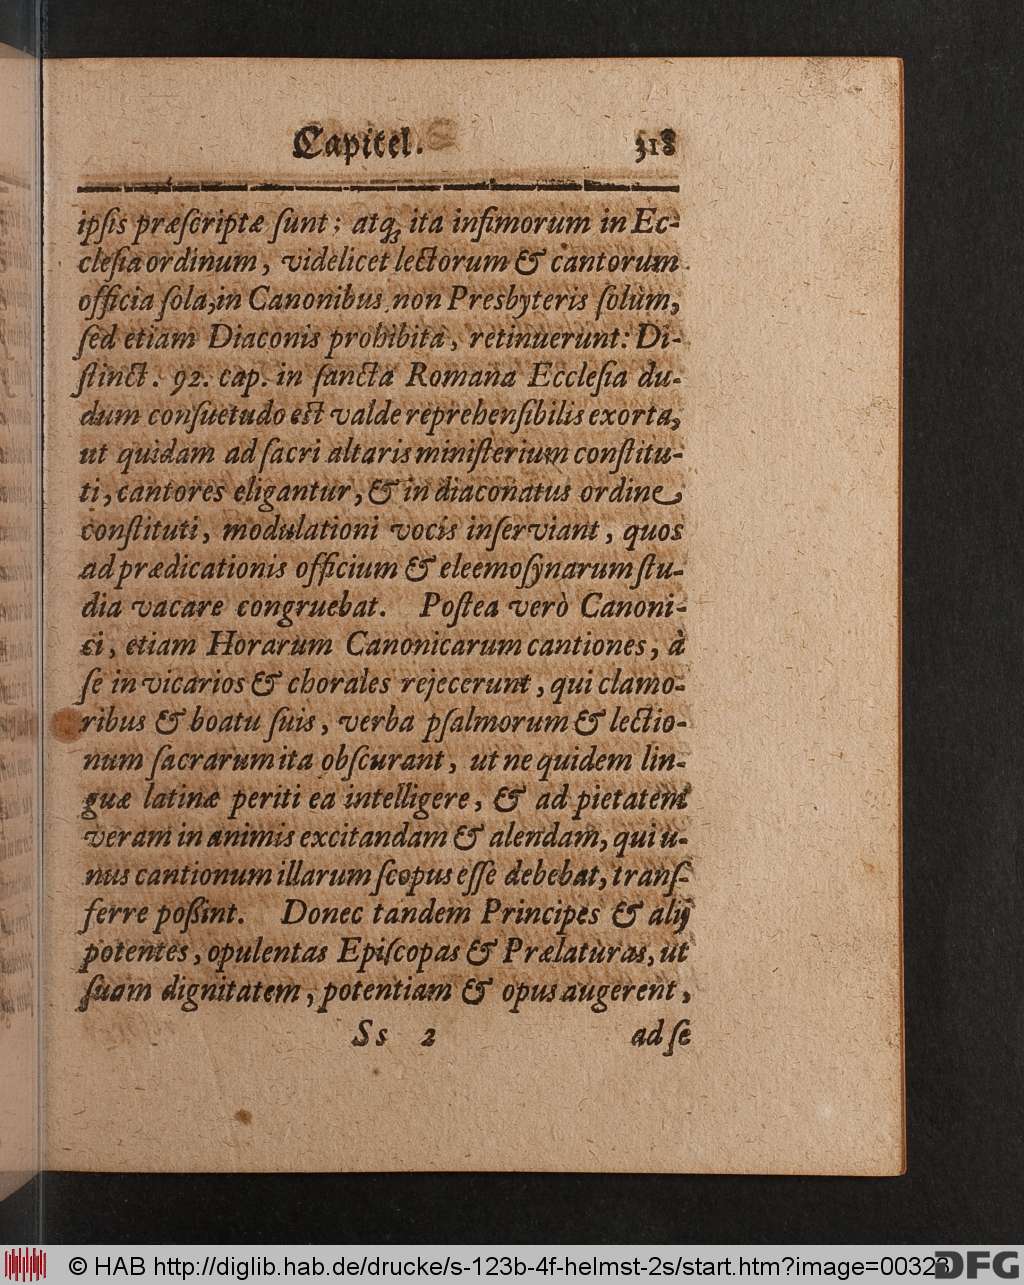 Capitel. 318
ipſis præſcriptæ ſunt; atq́; ita infimorum in Ec-
cleſia ordinum, videlicet lectorum & cantorum
officia ſola, in Canonibus non Presbyteris ſolùm,
ſed etiam Diaconis prohibita, retinuerunt: Di-
ſtinct. 92. cap. in ſancta Romana Eccleſia du-
dum conſuetudo eſt valde reprehenſibilis exorta,
ut quidam ad ſacri altaris miniſterium conſtitu-
ti, cantores eligantur, & in diaconatus ordine
conſtituti, modulationi vocis inſerviant, quos
ad prædicationis officium & eleemoſynarum ſtu-
dia vacare congruebat. Poſtea verò Canoni-
ci, etiam Horarum Canonicarum cantiones, à
ſe in vicarios & chorales rejecerunt, qui clamo-
ribus & boatu ſuis, verba pſalmorum & lectio-
num ſacrarum ita obſcurant, ut ne quidem lin-
guæ latinæ periti ea intelligere, & ad pietatem
veram in animis excitandam & alendam, qui u-
nus cantionum illarum ſcopus eſſe debebat, tranſ-
ferre poßint. Donec tandem Principes & alij
potentes, opulentas Epiſcopas & Prælaturas, ut
ſuam dignitatem, potentiam & opus augerent,
Ss 2 ad ſe
© HAB http://diglib.hab.de/drucke/s-123b-4f-helmst-2s/start.htm?image=00323
DFG